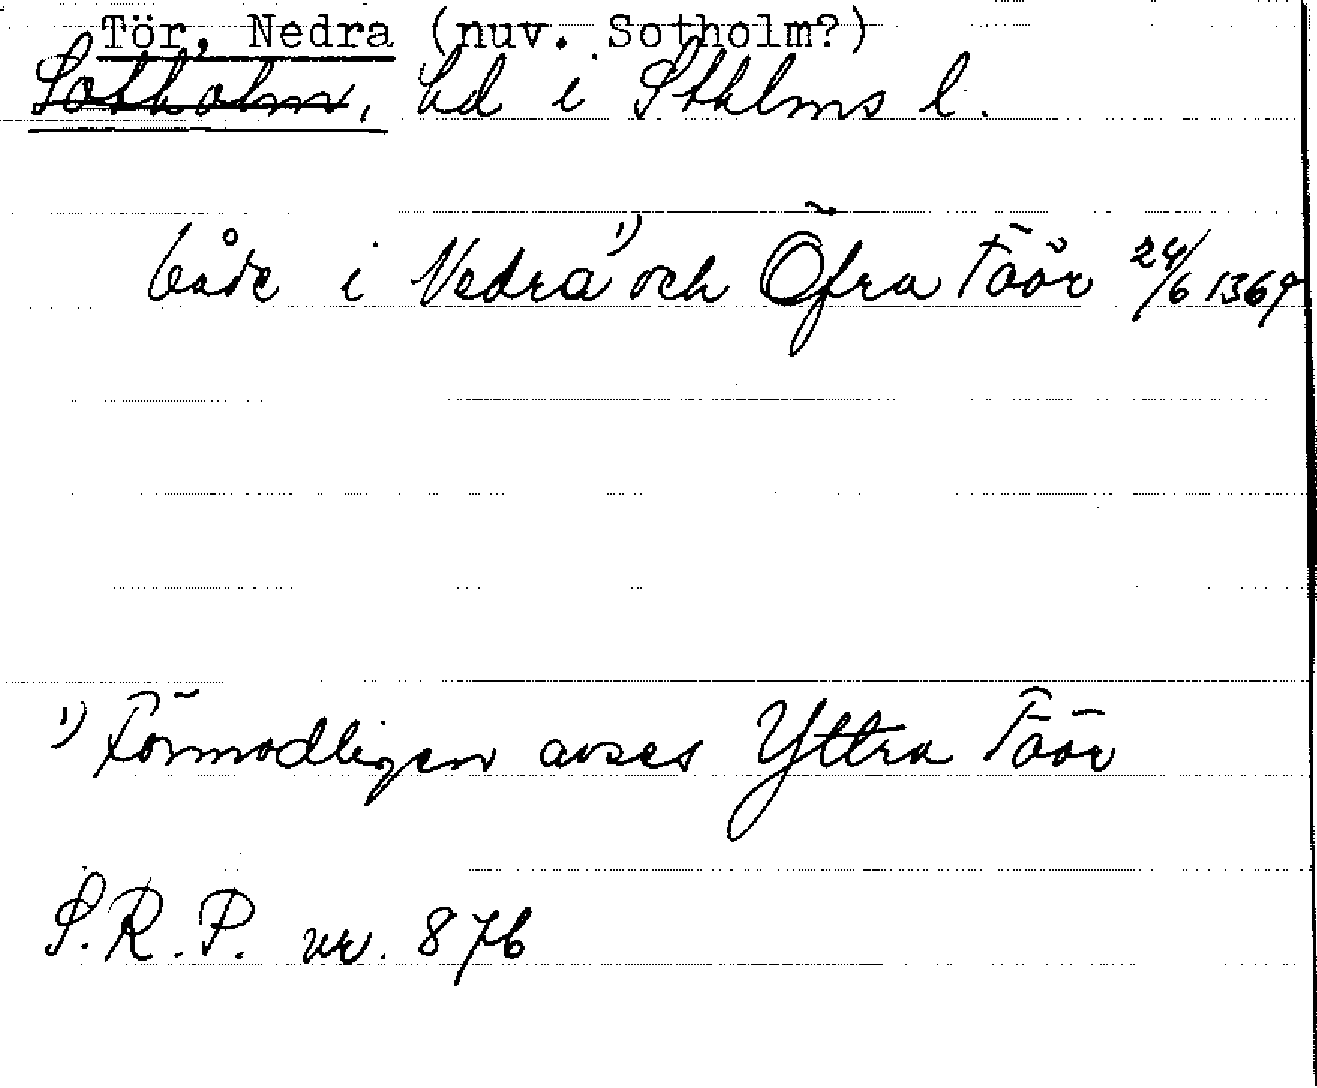 Tör, Nedra (nuv. Sotholm?)
Sotholm, hd i Sthlms l.
både i Nedra¹⁾ och Öfra Töör 24/6 1369
¹⁾ Förmodligen avses Yttra Töör
S.R.P. nr. 876